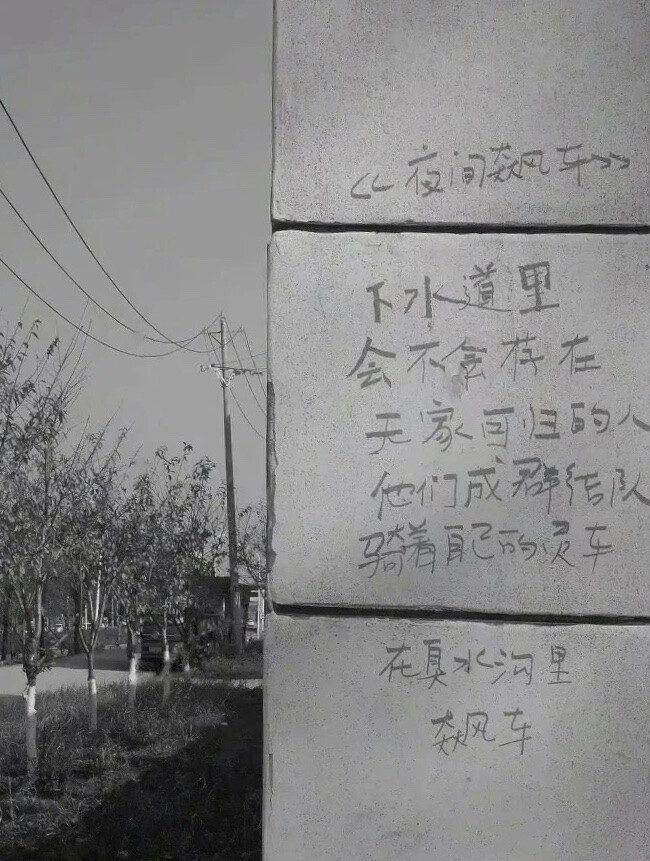 《夜间飙车》
下水道里
会不会存在
无家可归的人
他们成群结队
骑着自己的灵车
在臭水沟里
飙车